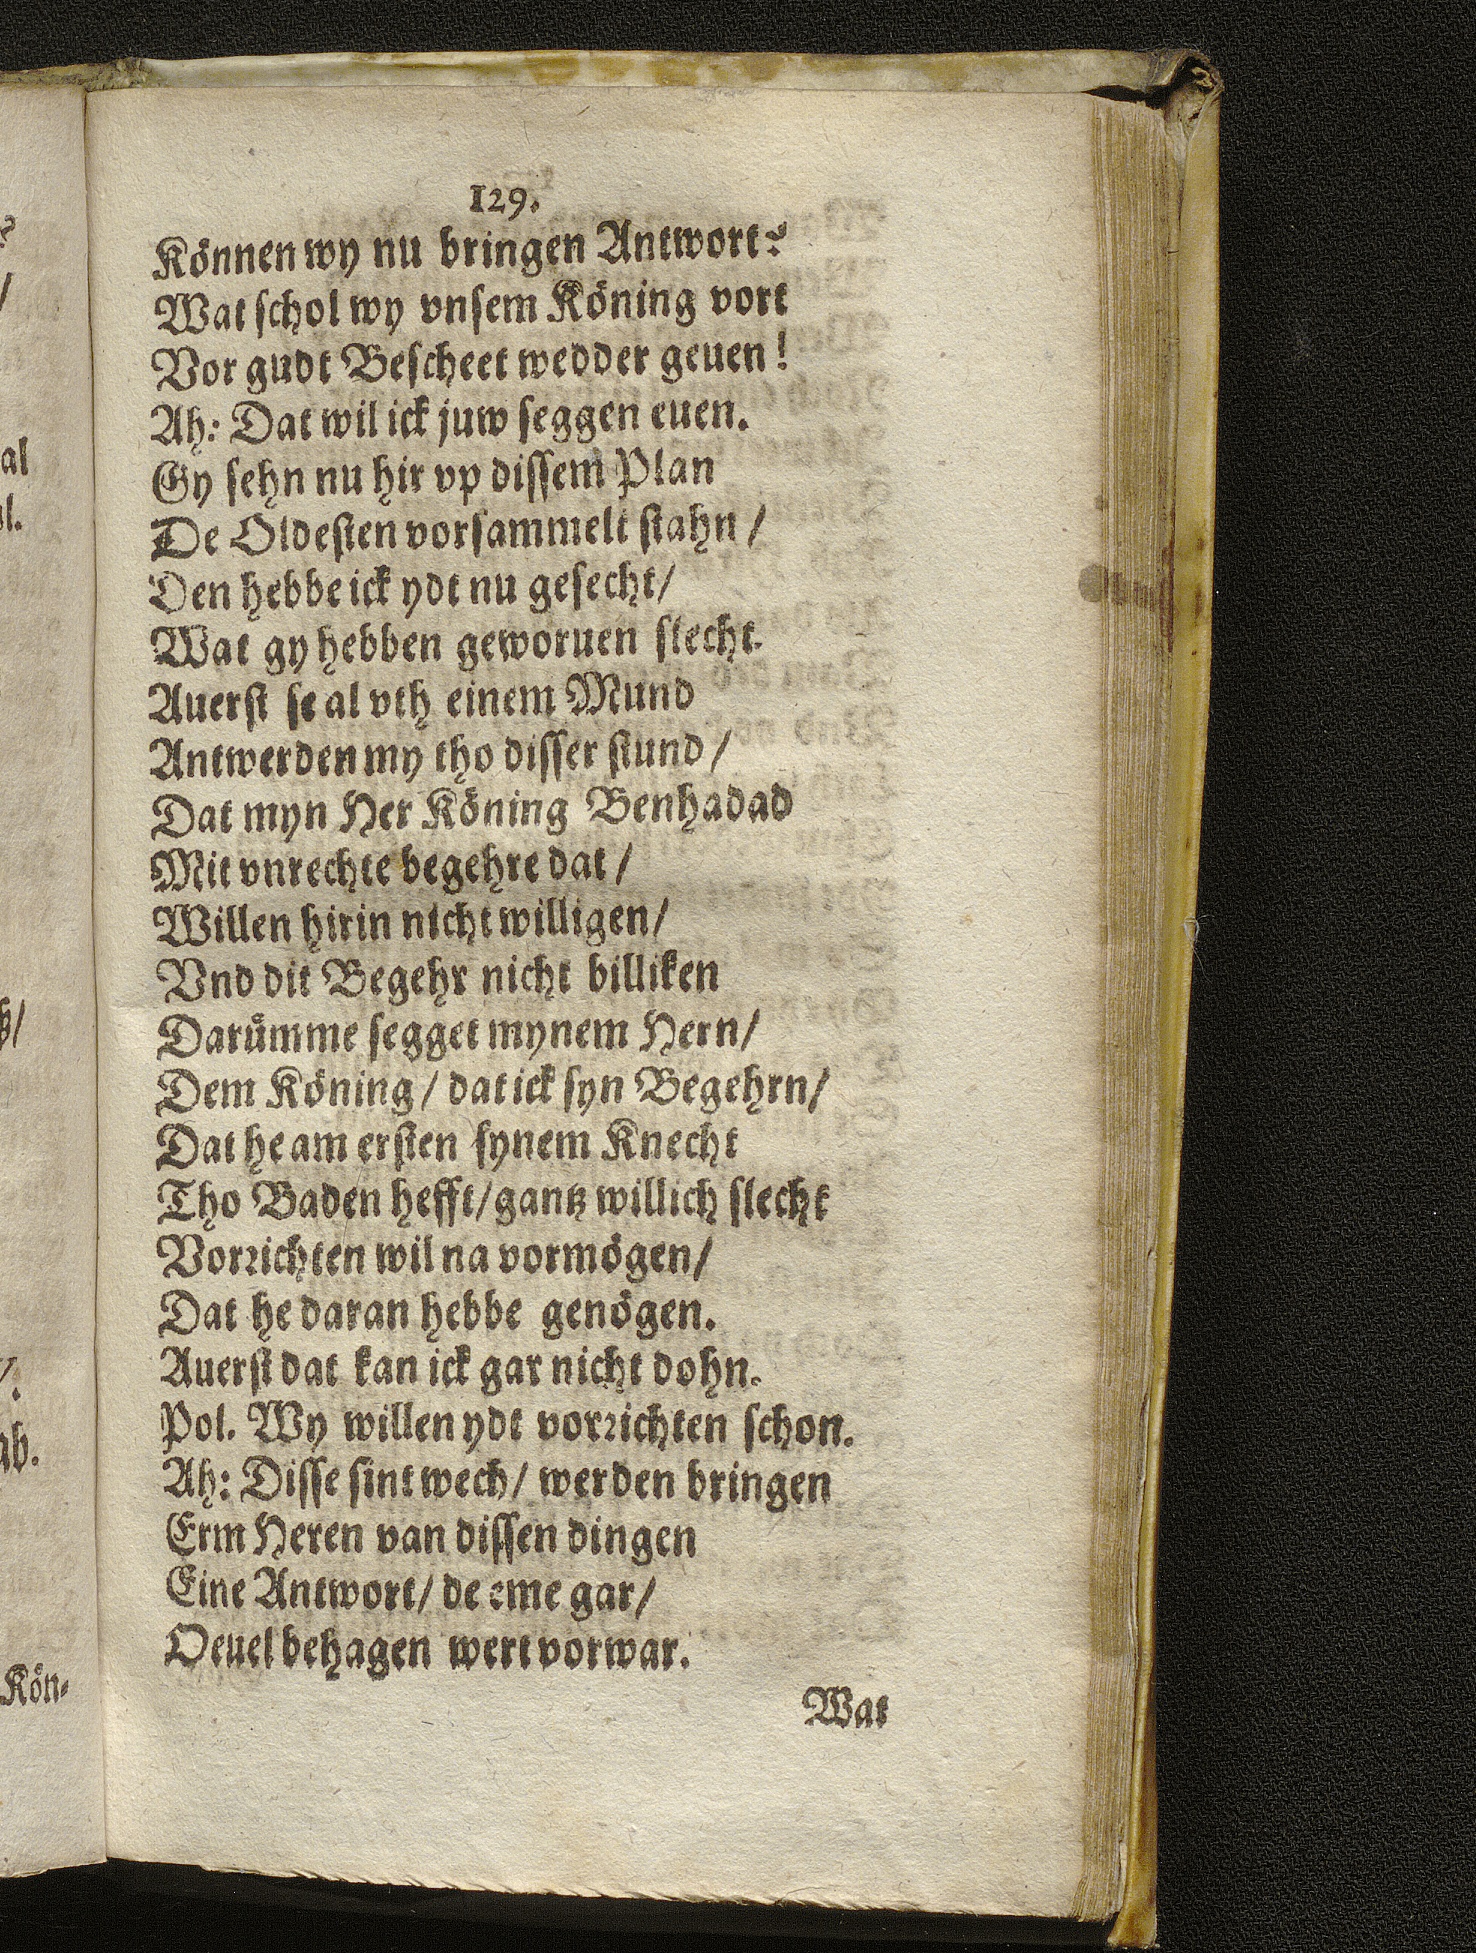 129.
Können wy nu bringen Antwort?
Wat schol wy vnsem Köning vort
Vor gudt Bescheet wedder geuen!
Ah: Dat wil ick juw seggen euen.
Gy sehn nu hir vp dissem Plan
De Oldesten vorsammelt stahn /
Den hebbe ick ydt nu gesecht /
Wat gy hebben geworuen slecht.
Auerst se al vth einem Mund
Antwerden my tho disser stund /
Dat myn Her Köning Benhadad
Mit vnrechte begehre dat /
Willen hirin nicht willigen /
Vnd dit Begehr nicht billiken
Darümme segget mynem Hern /
Dem Köning / dat ick syn Begehrn /
Dat he am ersten synem Knecht
Tho Baden hefft / gantz willich slecht
Vorrichten wil na vormögen /
Dat he daran hebbe genögen.
Auerst dat kan ick gar nicht dohn.
Pol. Wy willen ydt vorrichten schon.
Ah: Disse sint wech / werden bringen
Erm Heren van dissen dingen
Eine Antwort / de eme gar /
Oeuel behagen wert vorwar.
Wat
al
l.
/
ab.
Kön-